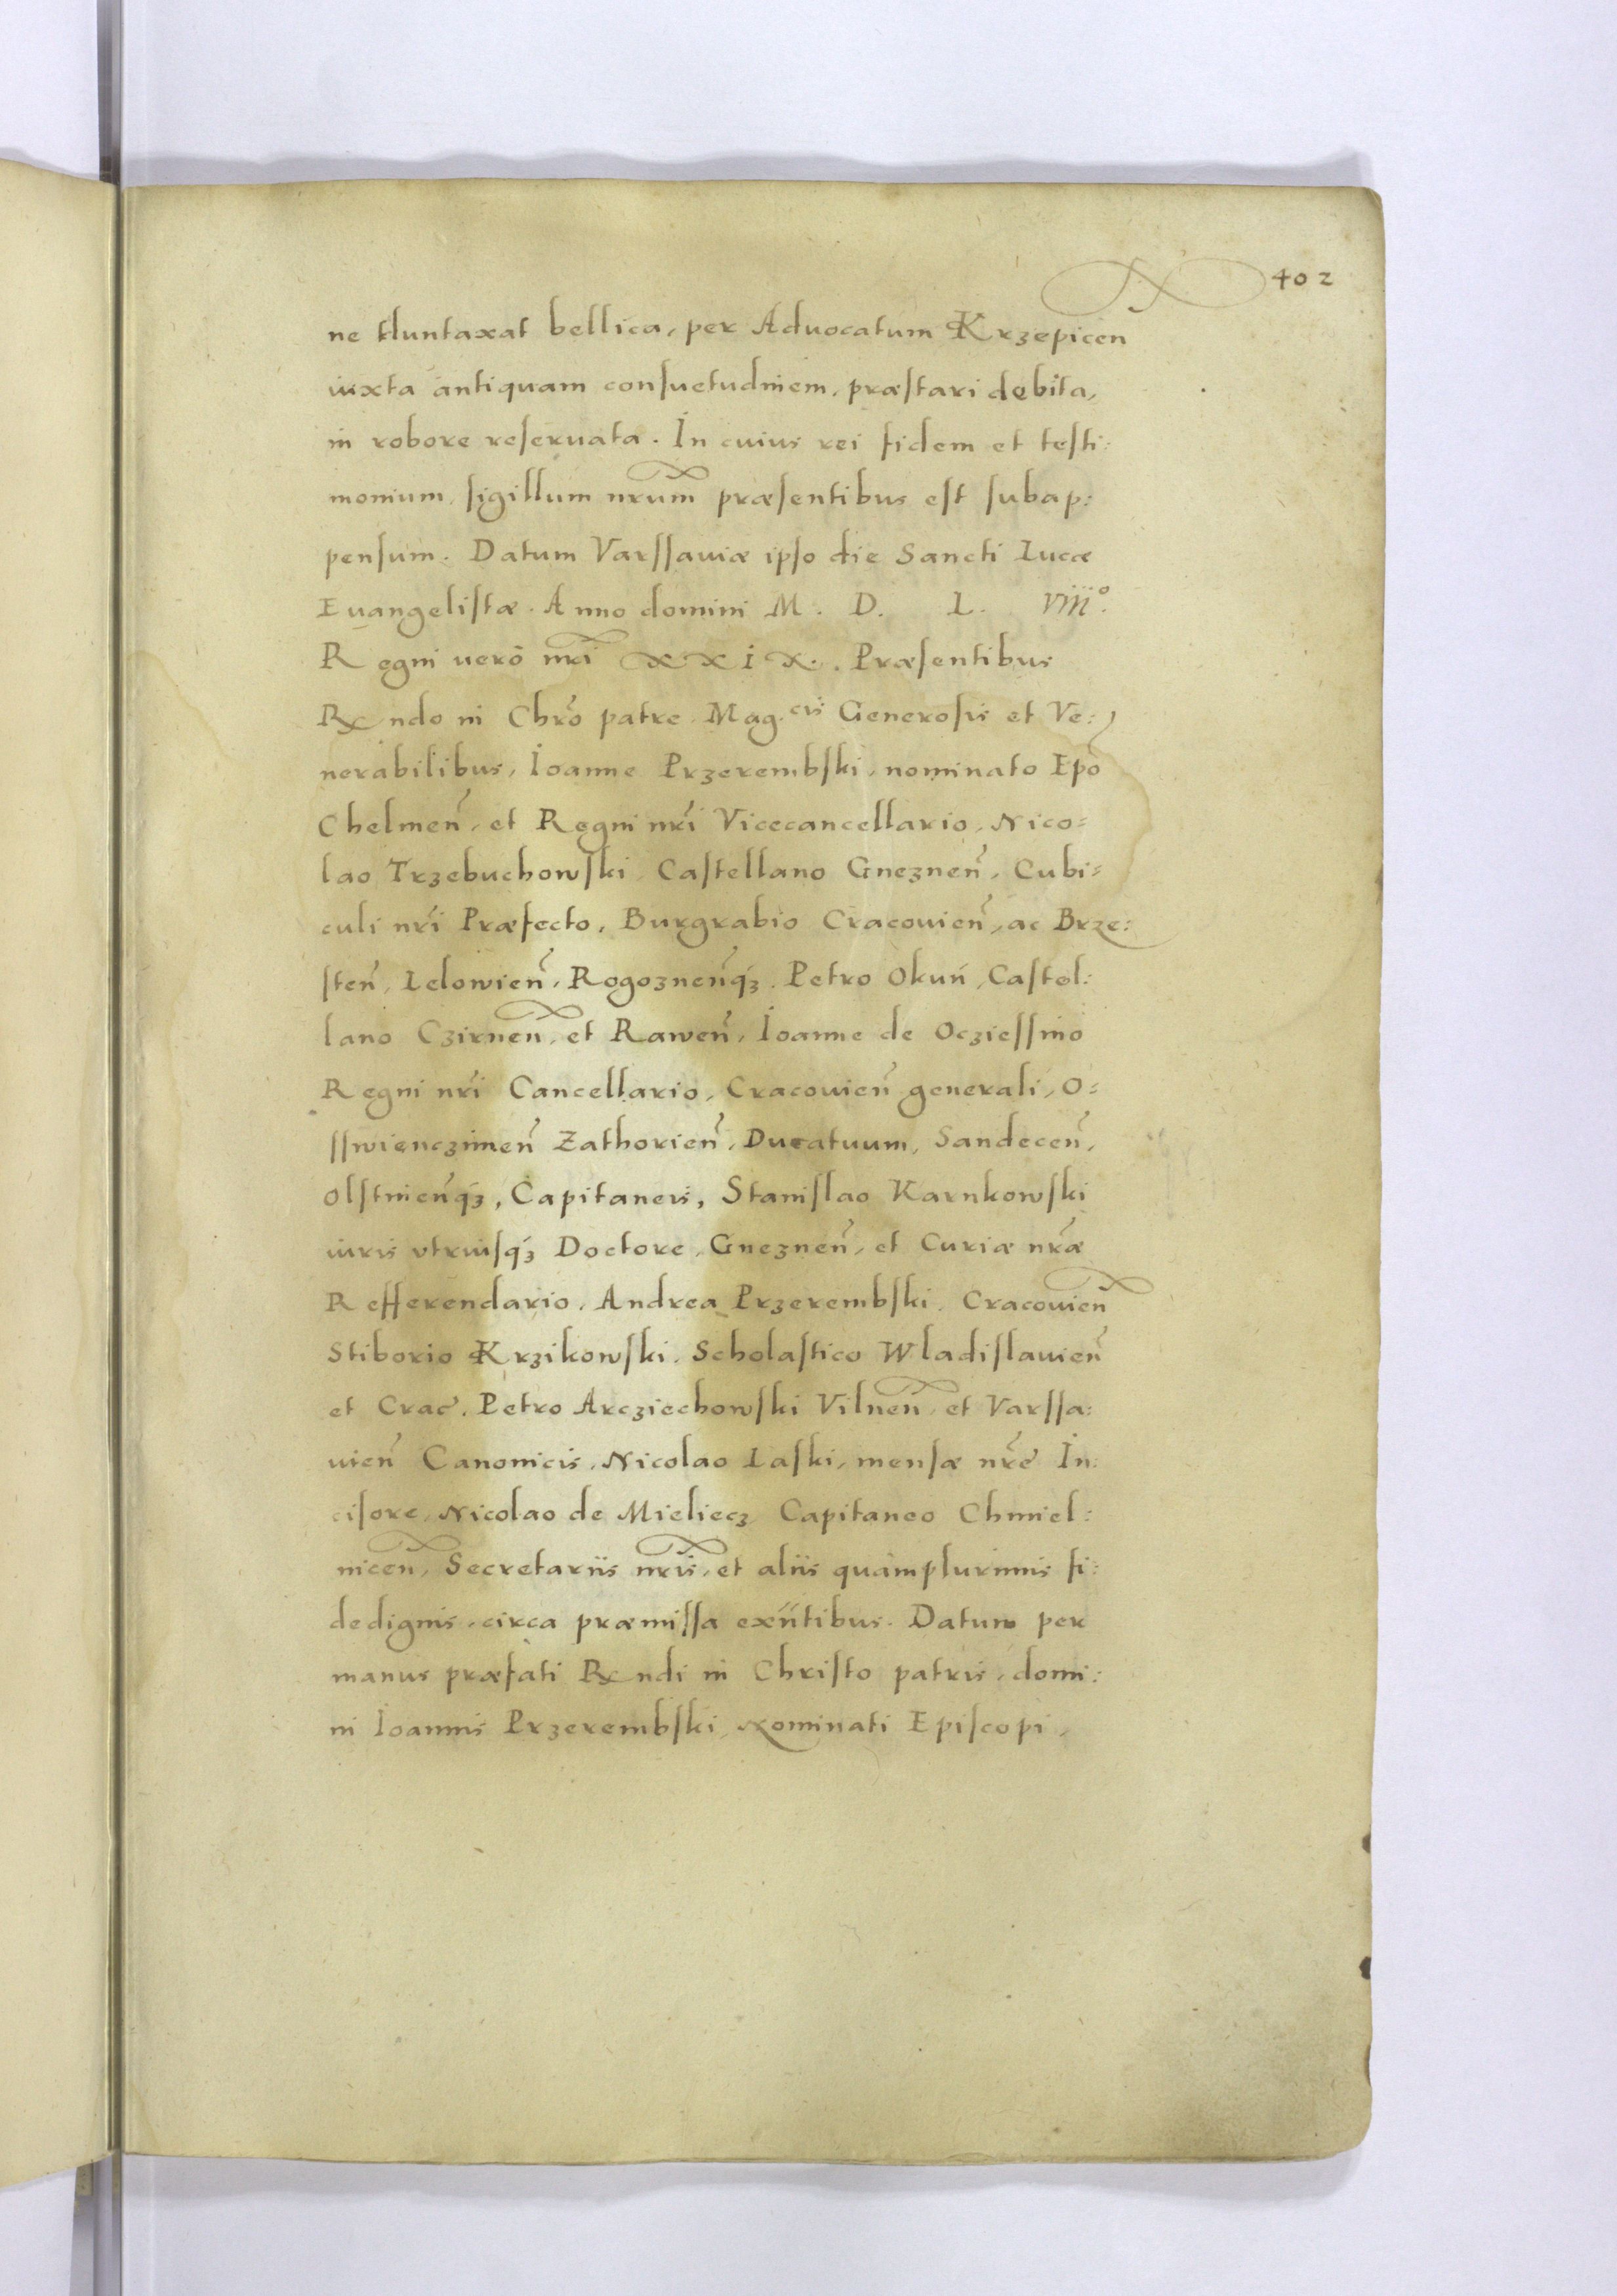 402
ne duntaxat bellica, per Advocatum Krzepicen
iuxta antiquam consuetudinem, præstari debita,
in robore reseruata. In cuius rei fidem et testi:
monium, sigillum nrum̃ præsentibus est subap:
pensum. Datum Varssauiæ ipso die Sancti Lucæ
Euangelistæ. Anno domini M. D. L. Viii°.
Regni uerò nr̃i XXIX. Præsentibus
Rndo in Chr̃o patre Mag.cis Generosis et Ve:
nerabilibus, Ioanne Przerembski, nominato Ep̃o
Chelmeñ, et Regni nr̃i Vicecancellario, Nico=
lao Trzebuchowski, Castellano Gnezneñ, Cubi=
culi nr̃i Præfecto, Burgrabio Cracouieñ, ac Brze:
steñ, Lelowieñ, Rogozneñqꝫ. Petro Okuń, Castel:
lano Czirneñ, et Raweñ, Ioanne de Ocziessino
Regni nr̃i Cancellario, Cracouieñ generali, O=
sswienczimeñ Zathorieñ, Ducatuum, Sandeceñ,
Olstinieñqꝫ, Capitaneis, Stanislao Karnkowski
iuris utriusqꝫ Doctore, Gnezneñ, et Curiæ nr̃æ
Refferendario, Andrea Przerembski, Cracouieñ
Stiborio Krzikowski, Scholastico Wladislauieñ
et Crac̃. Petro Arcziechowski Vilneñ, et Varssa:
uieñ Canonicis, Nicolao Laski, mensæ nr̃e In:
cisore, Nicolao de Mieliecz, Capitaneo Chmiel:
niceñ, Secretariis nr̃is, et aliis quàmplurimis fi:
dedignis, circa præmissa exñtibus. Datum per
manus præfati Rndi in Christo patris, domi:
ni Ioannis Przerembski, Nominati Episcopi,